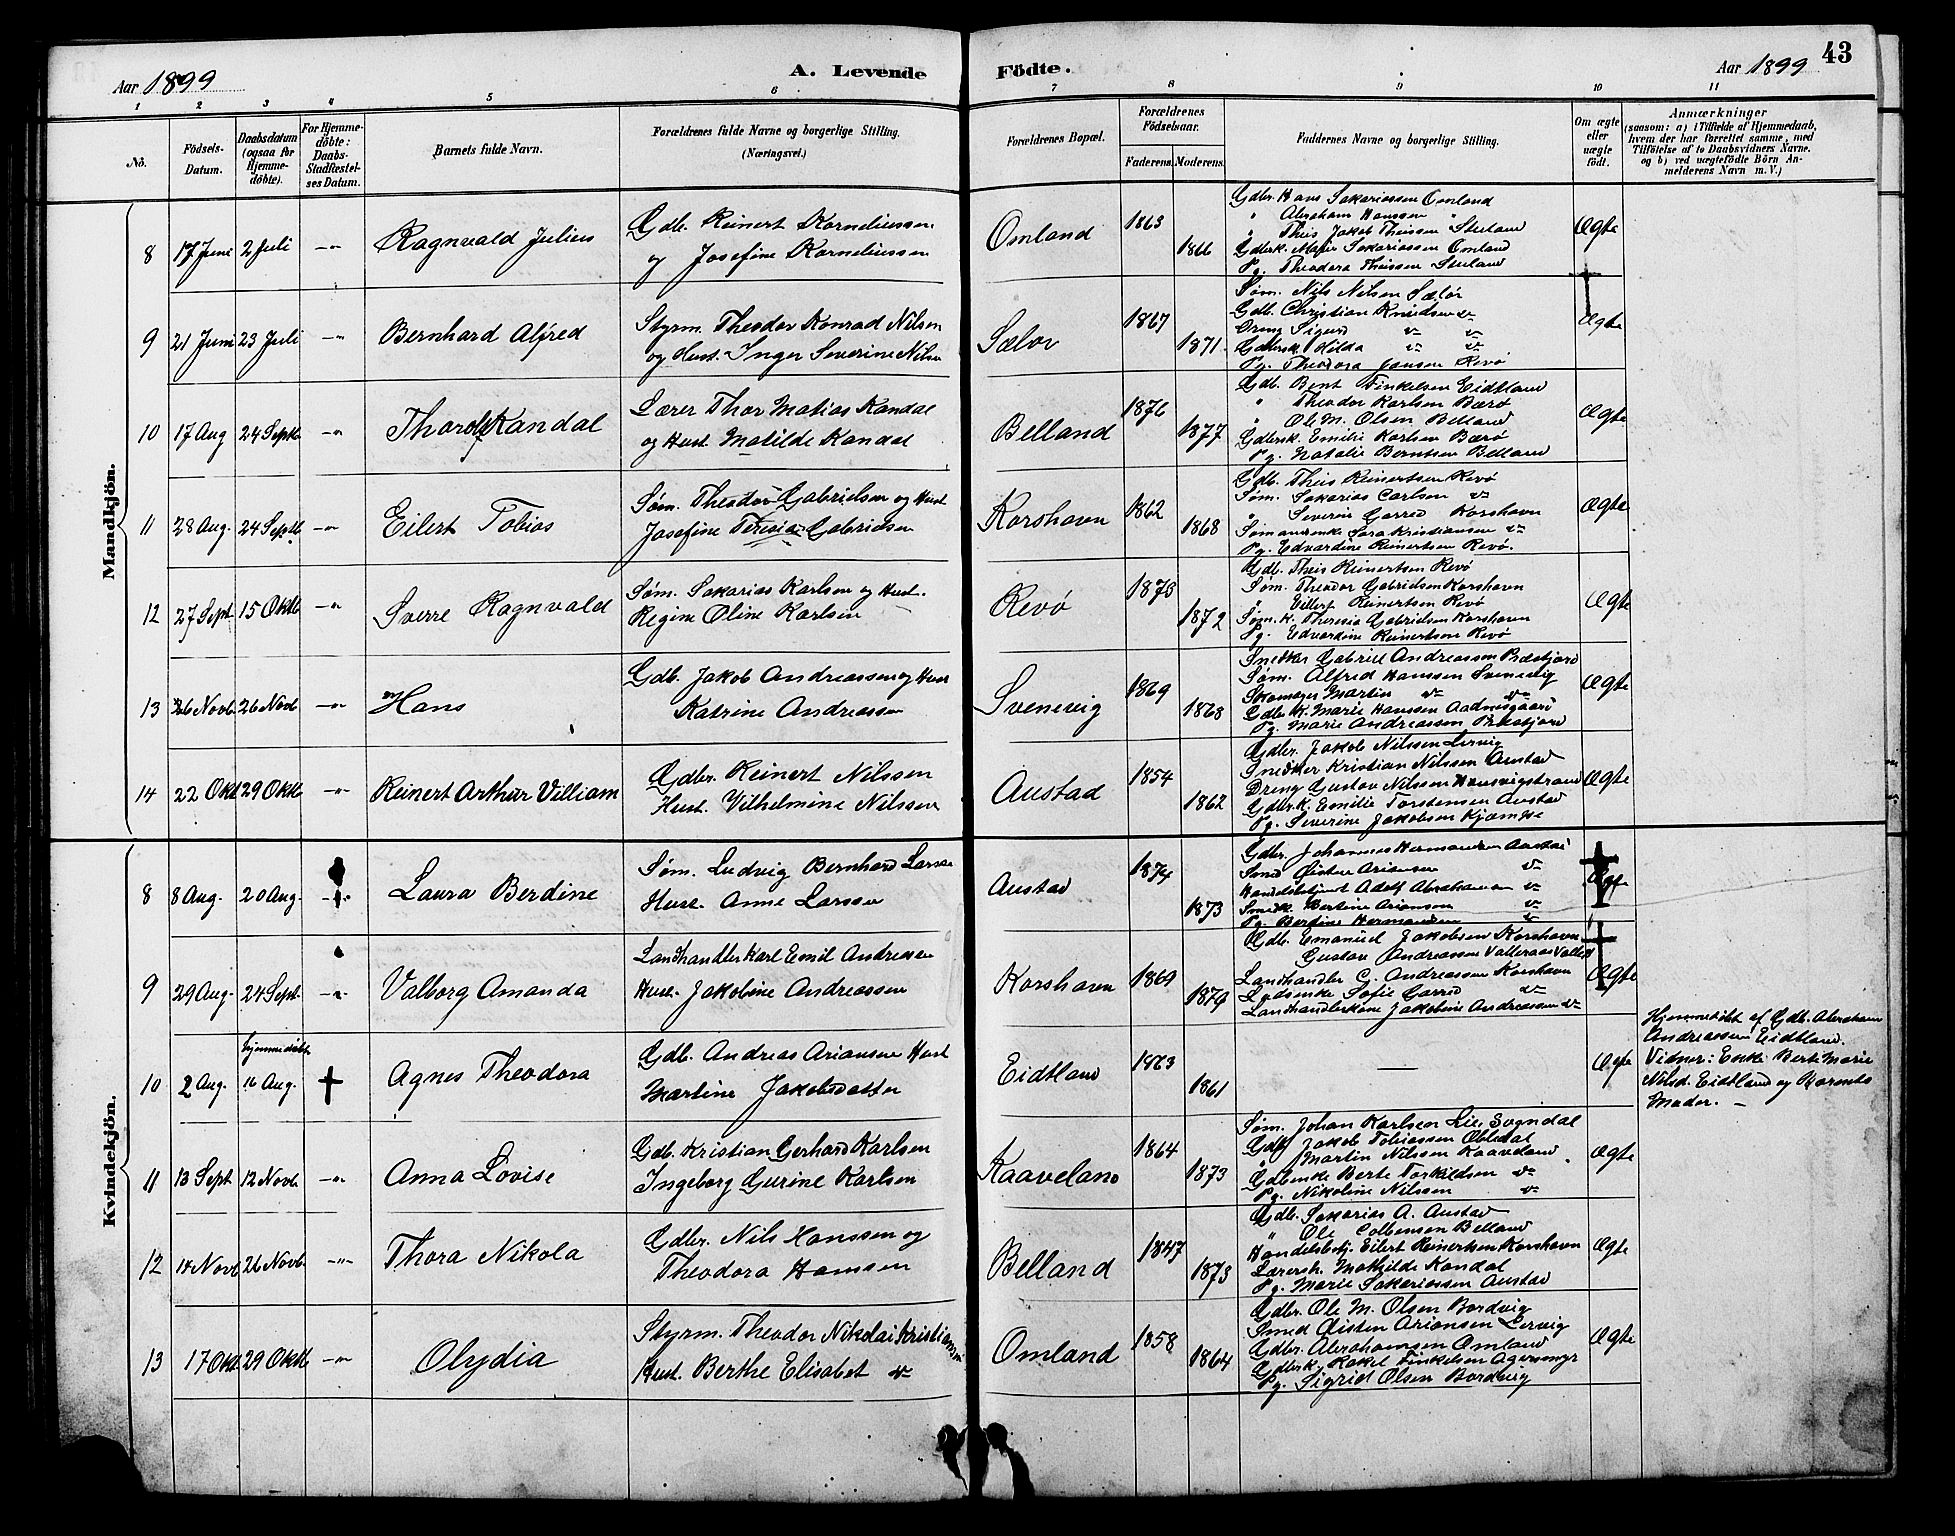 Aar 1899
A. Levende
Födte.
Aar 1899
43
1 2 3 4 5 6 7 8 9 10 11
No.
Födsels-Datum.
Daabsdatum (ogsaa för Hjemme-döbte).
For Hjemme-döbte: Daabs-Stadfestel-ses Datum.
Barnets fulde Navn.
Forældrenes fulde Navne og borgerlige Stilling.
(Næringsvei.)
Forældrenes Bopæl.
Forældrenes Födselsaar.
Faderens. Moderens.
Faddernes Navne og borgerlige Stilling.
Om ægte eller uægte födt.
Anmærkninger
(saasom: a) i Tilfælde af Hjemmedaab,
hvem der har forrettet samme, med
Tilföielse af to Daabsvidners Navne.
og b) ved uægtefödte Börn An-
melderens Navn m. V.)
Mandkjön.
8 17 Juni 2 Juli -"- Ragnvald Julius
Gdb. Reinert Korneliussen
og Josefine Korneliussen
Omland 1863 1866
Gdbr. Hans Sakariassen Omland
" Abraham Hanssen "
" Theis Jakob Theissen Stuland
Gdbrsk. Marie Sakariassen Omland
Pg. Theodora Theissen Stuland
Ægte
9 21 Juni 23 Juli -"- Bernhard Alfred
Styrm. Theodor Konrad Nilsen
og Hust. Inger Severine Nilsen
Sælør 1867 1871
Søm. Nils Nilsen Sælør
Gdb. Christian Knudsen "
Dreng Sigurd " "
Gdbersk. Hilda " "
Pg. Theodora Jansen Revø
Ægte
10 17 Aug 24 Septb -"- Thorolf Kandal
Lærer Thor Matias Kandal
og Hust. Matilde Kandal
Belland 1876 1877
Gdb. Bent Finkelsen Eidtland
" Theodor Karlsen Bærø
" Ole M. Olsen Belland
Gdbersk. Emilie Karlsen Bærø
Pg. Natalie Berntsen Belland
Ægte
11 28 Aug. 24 Septb. -"- Eilert Tobias
Søm. Theodor Gabrielsen og Hust
Josefine Teresia Gabrielsen
Korshavn 1862 1868
Gdb. Theis Reinertsen Revø
Søm. Sakarias Carlsen "
" Severin Garred Korshavn
Sømandsenke Sara Kristiansen "
Pg. Edvardine Reinertsen Revø.
Ægte
12 27 Sept 15 Oktb -"- Sverre Ragnvald
Søm. Sakarias Karlsen og Hust.
Regine Oline Karlsen
Revø 1872
Gdb. Theis Reinertsen Revø
Søm. Theodor Gabrielsen Korshavn
" Eilert Reinertsen Revø
Søm. k. Theresia Gabrielsen Korshavn
Pg. Edvardine Reinertsen Revø
Ægte
13 26 Novb. 26 Novb -"- Hans
Gdb. Jakob Andreassen og Hust
Katrine Andreassen
Svenevig 1869 1868
Snedker Gabriel Andreassen
Søm. Alfred Hanssen Svenevig
Skomager Martin " "
Gdb. K. Marie Hanssen Aadnesgaard
Pg. Marie Andreassen
Ægte
14 22 Okt 29 Oktb -"- Reinert Arthur Villiam
Gdbr. Reinert Nilssen
Hust. Vilhelmine Nilssen
Austad 1854 1862
Gdbr. Jakob Nilssen Lervig
Snedker Kristian Nilssen Austad
Dreng Gustav Nilssen
Gdbr. K. Emilie Torstensen Austad
Pg. Severine Jakobsen
Ægte
Kvindekjön.
8 8 Aug. 20 Aug. Laura Berdine
Søm. Ludvig Bernhard Larsen
Hust. Anne Larsen
Austad 1874 1873
Gdbr. Johannes Hermandsen Austad
Smed Øisten Ariansen "
Handelsbetjent Adolf Abrahamsen "
Smedk. Bertine Ariansen "
Pg. Berdine Hermandsen "
Ægte
9 29 Aug. 24 Sept. -"- Valborg Amanda
Landhandler Karl Emil Andreassen
Hust. Jakobine Andreassen
Korshavn 1869 1879
Gdb. Emanuel Jakobsen Korshavn
Gustav Andreassen
Landhandler C. Andreassen Korshavn
Sofie Garred "
Landhandlerkone Jakobine Andreassen "
Ægte
10 2 Aug. hjemmedøbt 16 Aug. Agnes Theodora
Gdb. Andreas Ariansen Hust
Martine Jakobsdatter
Eidtland 1863 1861
—
Ægte
Hjemmedøbt af Gdb. Abraham
Andreassen Eidtland.
Vidner: Enke Berte Marie
Nilsd. Eidtland og Barnets
Moder. —
11 13 Sept 12 Novb. -"- Anna Lovise
Gdb. Kristian Gerhard Karlsen
Ingeborg Gurine Karlsen
Kaaveland 1864 1873
Søm. Johan Karlsen Lie, Sogndal
Gdb. Jakob Tobiassen
" Martin Nilssen Kaaveland
Gdbenke Berte Torkildsen "
Pg. Nikoline Nilssen "
Ægte
12 14 Novb 26 Novb. -"- Thora Nikola
Gdbr. Nils Hanssen og
Theodora Hansen
Belland 1847 1873
Gdb. Sakarias A. Austad
" Ole Colbensen Belland
Handelsbetj. Eilert Reinertsen Korshavn
Lærersk. Mathilde Kandal
Pg. Marie Sakariassen Austad
Ægte
13 17 Okt. 29 Oktb -"- Olydia
Styrm. Theodor Nikolai Kristiansen
Hust. Berthe Elisabet "
Omland 1858 1864
Gdbr. Ole M. Olsen Bordvig
Smed Øisten Ariansen Lervig
Gdbr. Abrahamsen Omland
Gdbersk. Rakel Finkelsen
Pg. Sigrid Olsen Bordvig
Ægte